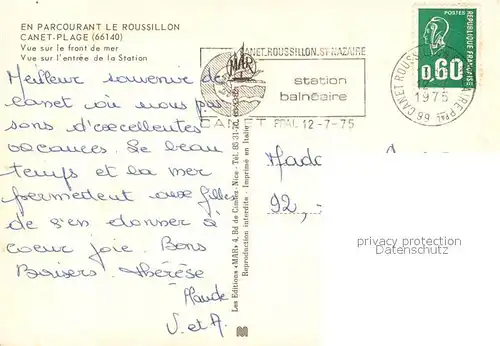 EN PARCOURANT LE ROUSSILLON
CANET-PLAGE (66140)
Vue sur le front de mer
Vue sur l'entrée de la Station
Meilleur souvenir de
Canet où nous pas
sons d'excellentes
vacances. Le beau
temps et la mer
permettent aux filles
de s'en donner à
coeur joie. Bons
Baisers. Thérèse
Claude
V. et A.
CANET.ROUSSILLON.ST NAZAIRE
MAR
station
balnéaire
CANET PPAL 12-7-75
Les Editions «MAR» 4, Bd de Cimiez - Nice - Tél.
Reproduction interdite - Imprimé en Italie
POSTES
0,60
REPUBLIQUE FRANÇAISE
1975
66 CANET ROUSS
AIRE PPAL
Mada
92, -
privacy protection
Datenschutz